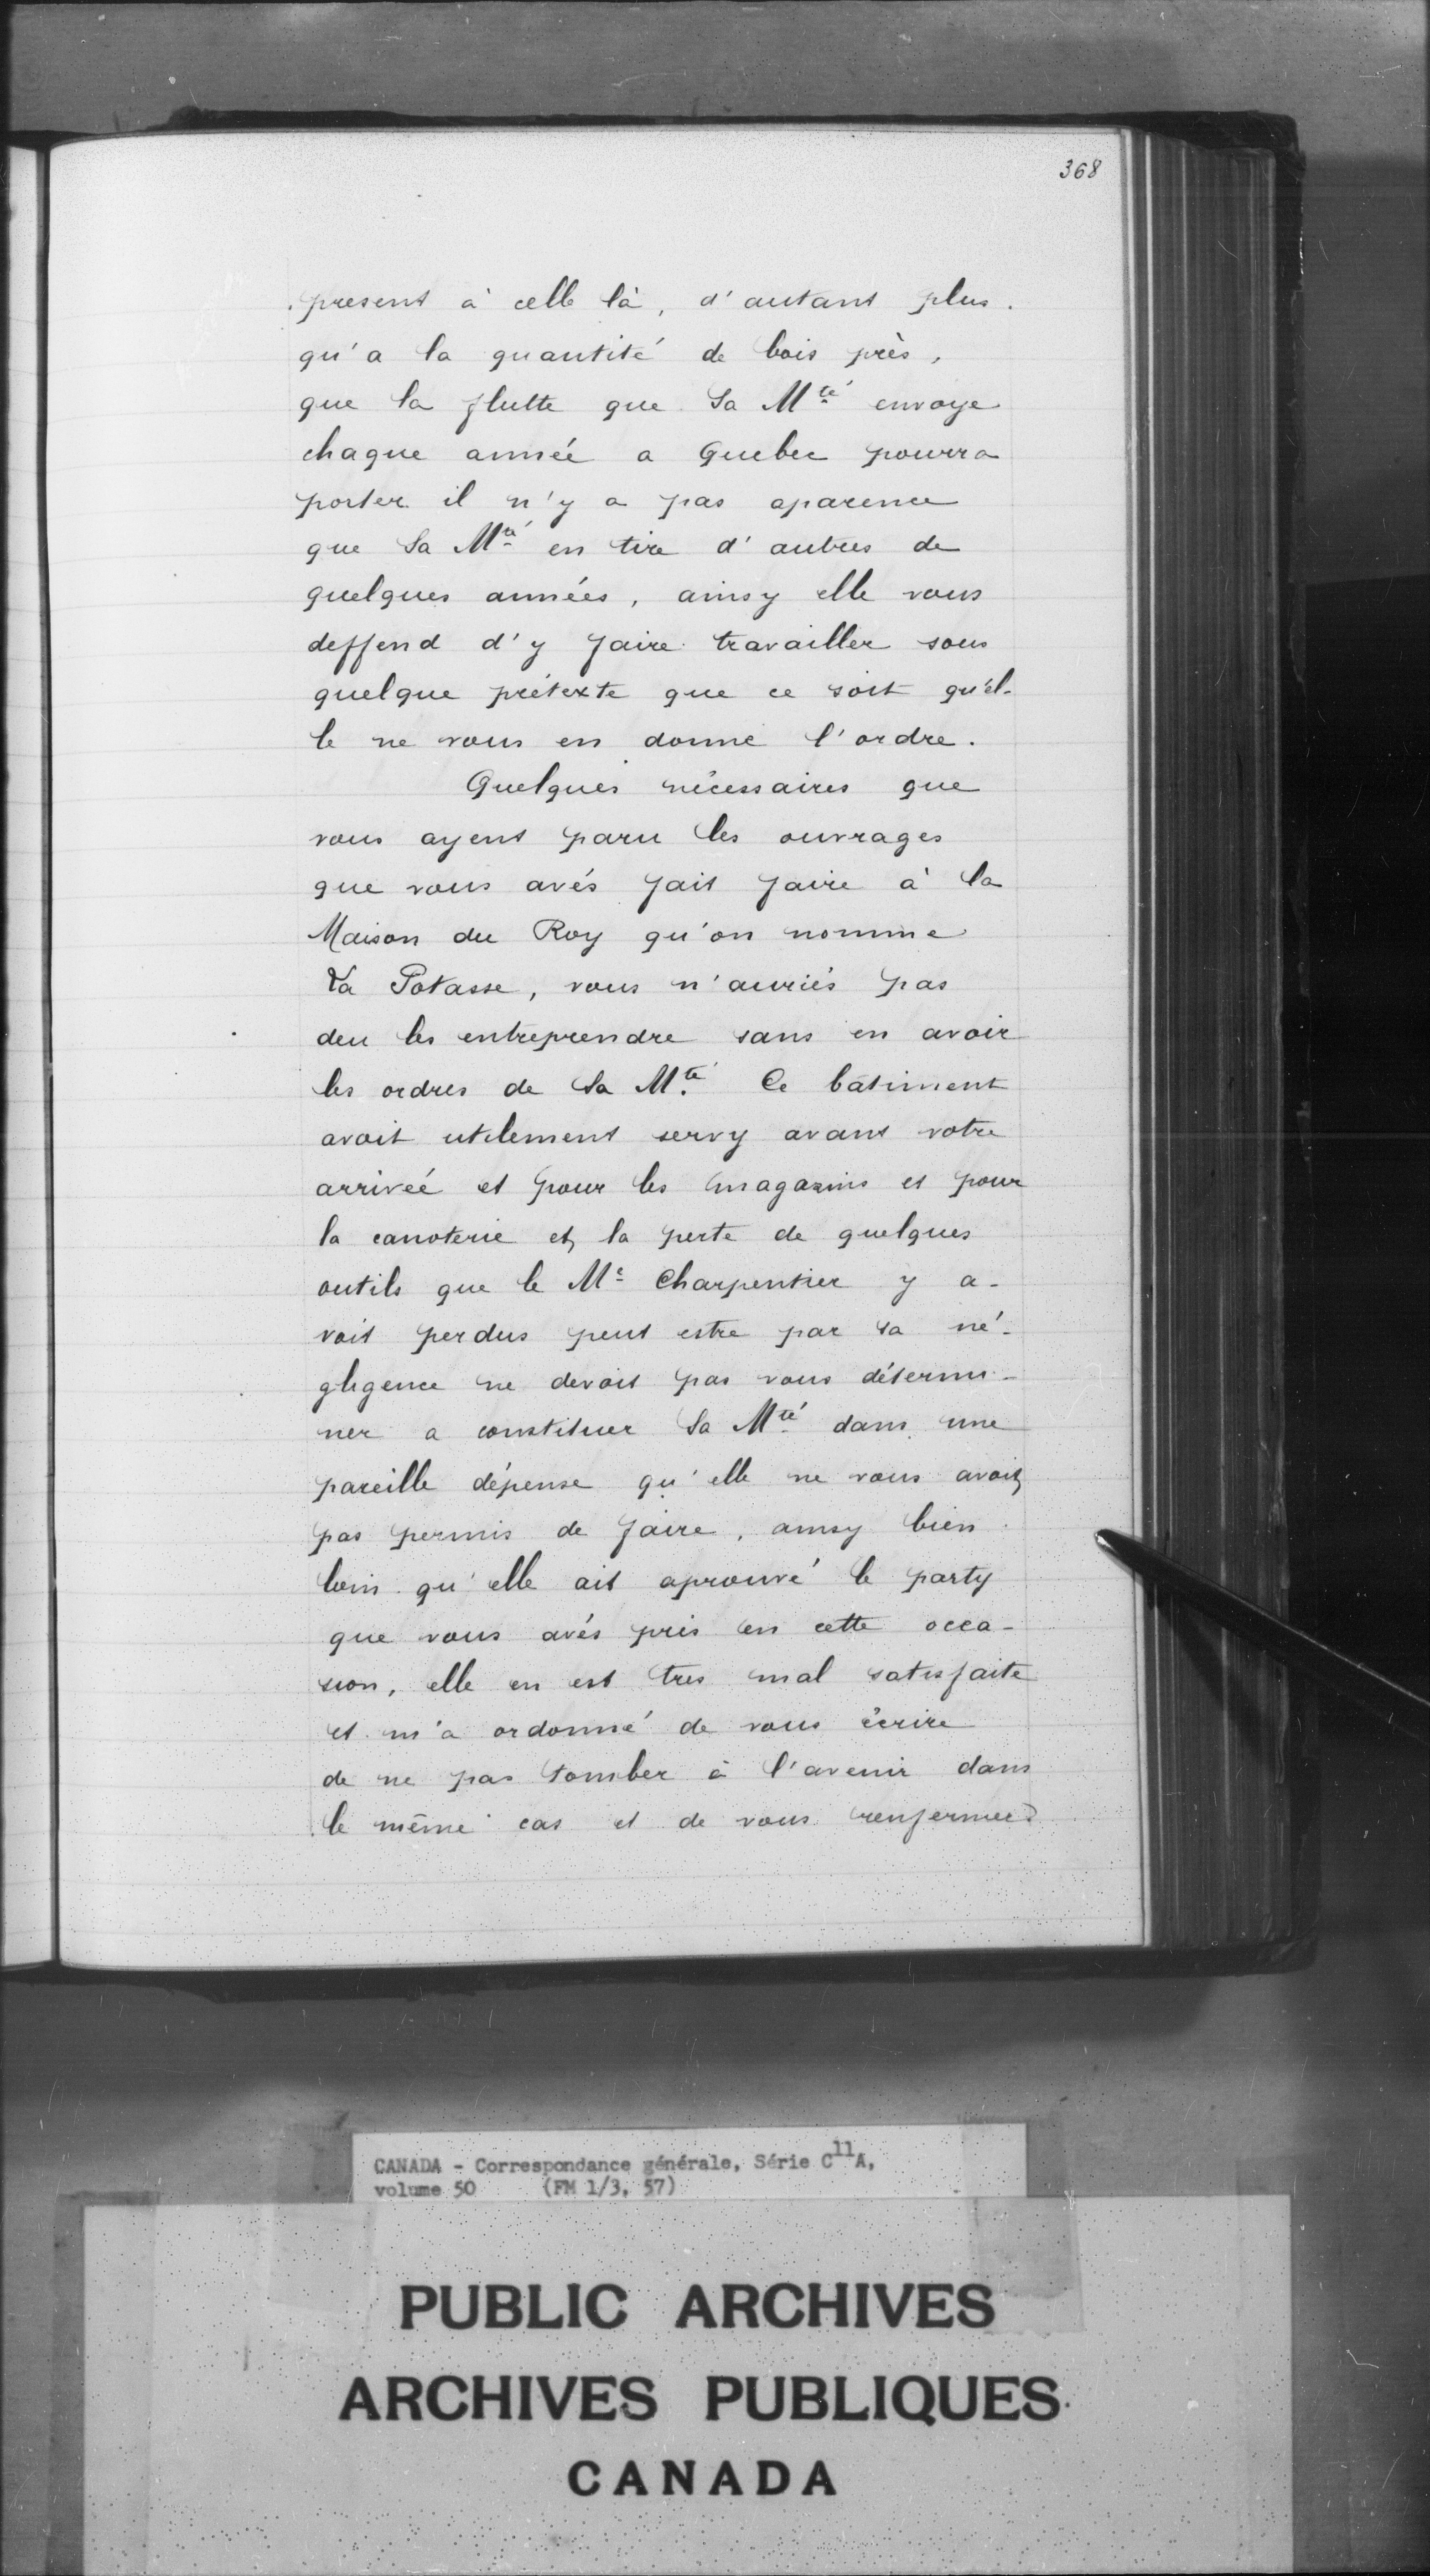 368
present à celle là, d'autant plus
qu'a la quantité de bois près,
que la flutte que Sa Mté envoye
chaque année a Quebec pourra
porter il n'y a pas aparence
que Sa Mté en tire d'autres de
quelques années, ainsy elle vous
deffend d'y faire travailler sous
quelque prétexte que ce soit qu'el-
le ne vous en donne l'ordre.
Quelques nécessaires que
vous ayent paru les ouvrages
que vous avés fait faire à la
Maison du Roy qu'on nomme
La Potasse, vous n'auriés pas
deu les entreprendre sans en avoir
les ordres de Sa Mté. Ce bâtiment
avoit utilement servy avant votre
arrivéé et pour les magazins et pour
la canoterie et la perte de quelques
outils que le Me Charpentier y a-
voit perdus peut estre par sa né-
gligence ne devoit pas vous détermi-
ner a constituer Sa Mté dans une
pareille dépense qu'elle ne vous avoit
pas permis de faire, ainsy bien
loin qu'elle ait aprouvé le party
que vous avés pris en cette occa-
sion, elle en est tres mal satisfaite
et m'a ordonné de vous écrire
de ne pas tomber à l'avenir dans
le même cas et de vous renfermer
CANADA - Correspondance générale, Série C11A,
volume 50 (FM 1/3, 57)
PUBLIC ARCHIVES
ARCHIVES PUBLIQUES
CANADA